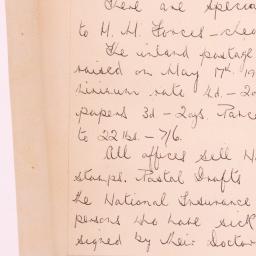 There are specia
to H. M. Forces - chea
The inland postage
raised on May 17th 19
minimum rate 4d. - 20
papers 3d - 2ozs. Parce
to 22 lbs. - 7/6.
All offices sell N
stamps. Postal Drafts
the National Insurance
persons who have sick
signed by their Doctor